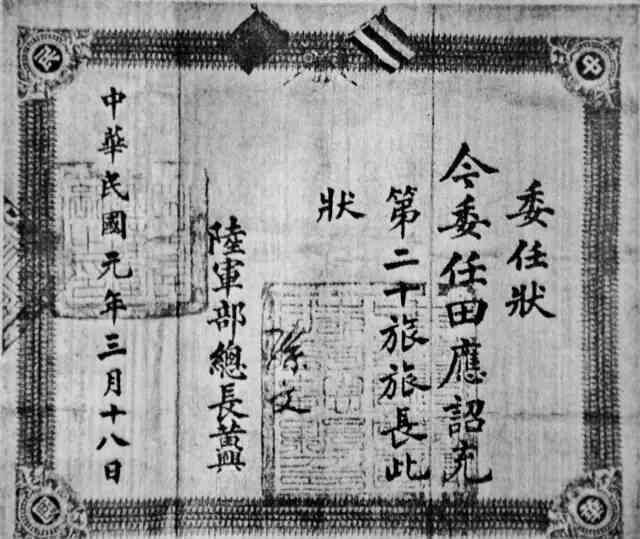 委任狀
今委任田應詔充
第二十旅旅長此
狀
孫文
陸軍部總長黃興
中華民國元年三月十八日
中
華
民
國